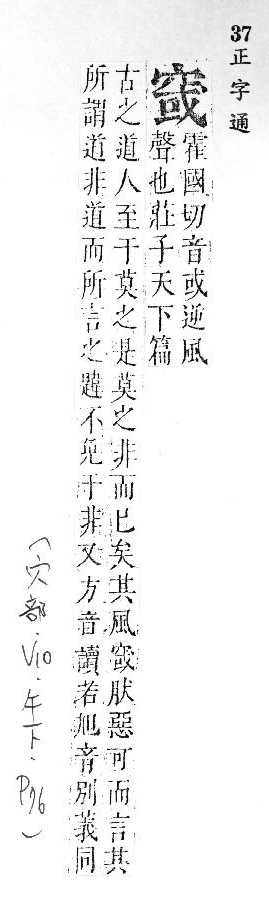 37 正字通
窢
霍國切音或逆風
聲也莊子天下篇
古之道人至于莫之是莫之非而已矣其風窢肰惡可而言其
所謂道非道而所言之韙不免于非又方音讀若旭音別義同
(穴部.V10.午下.P76)